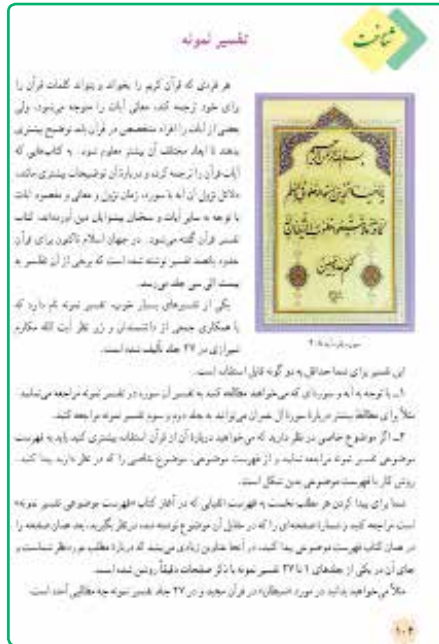 شناخت
تفسیر نمونه
هر فردی که قرآن کریم را بخواند و بتواند کلمات قرآن را
برای خود ترجمه کند، معانی آیات را متوجه می‌شود، ولی
بعضی از آیات را افراد متخصص در قرآن باید توضیح بیشتری
بدهند تا ابعاد مختلف آن بیشتر معلوم شود. به کتاب‌هایی که
آیات قرآن را ترجمه کرده و دربارهٔ آن توضیحات بیشتری مانند،
دلائل نزول آن آیه یا سوره، زمان نزول و معانی و مقصود آیات
با توجه به سایر آیات و سخنان پیشوایان دین آورده‌اند، کتاب
تفسیر قرآن گفته می‌شود. در جهان اسلام تاکنون برای قرآن
حدود یکصد تفسیر نوشته شده است که برخی از آن تفاسیر به
بیست الی سی جلد می‌رسد.
یکی از تفسیرهای بسیار خوب، تفسیر نمونه نام دارد که
با همکاری جمعی از دانشمندان و زیر نظر آیت الله مکارم
شیرازی در ۲۷ جلد تألیف شده است.
این تفسیر برای شما حداقل به دو گونه قابل استفاده است.
۱ـ با توجه به آیه و سوره‌ای که می‌خواهید مطالعه کنید به تفسیر آن سوره در تفسیر نمونه مراجعه می‌نمایید.
مثلاً برای مطالعهٔ بیشتر دربارهٔ سورهٔ آل عمران می‌توانید به جلد دوم و سوم تفسیر نمونه مراجعه کنید.
۲ـ اگر موضوع خاصی در نظر دارید که می‌خواهید دربارهٔ آن از قرآن استفاده بیشتری کنید باید به فهرست
موضوعی تفسیر نمونه مراجعه نمایید و از فهرست موضوعی، موضوع خاصی را که در نظر دارید پیدا کنید.
روش کار با فهرست موضوعی بدین شکل است.
شما برای پیدا کردن هر مطلب نخست به فهرست الفبایی که در آغاز کتاب «فهرست موضوعی تفسیر نمونه»
است مراجعه کنید و شمارهٔ صفحه‌ای را که در مقابل آن موضوع نوشته شده در نظر بگیرید، بعد همان صفحه را
در همان کتاب فهرست موضوعی پیدا کنید، در آنجا عناوین زیادی می‌بینید که دربارهٔ مطلب مورد نظر شماست و
جای آن در یکی از جلدهای ۱ تا ۲۷ تفسیر نمونه با ذکر صفحات دقیقاً روشن شده است.
مثلاً می‌خواهید بدانید در مورد «شیطان» در قرآن مجید و در ۲۷ جلد تفسیر نمونه چه مطالبی آمده است.
۱۰۴